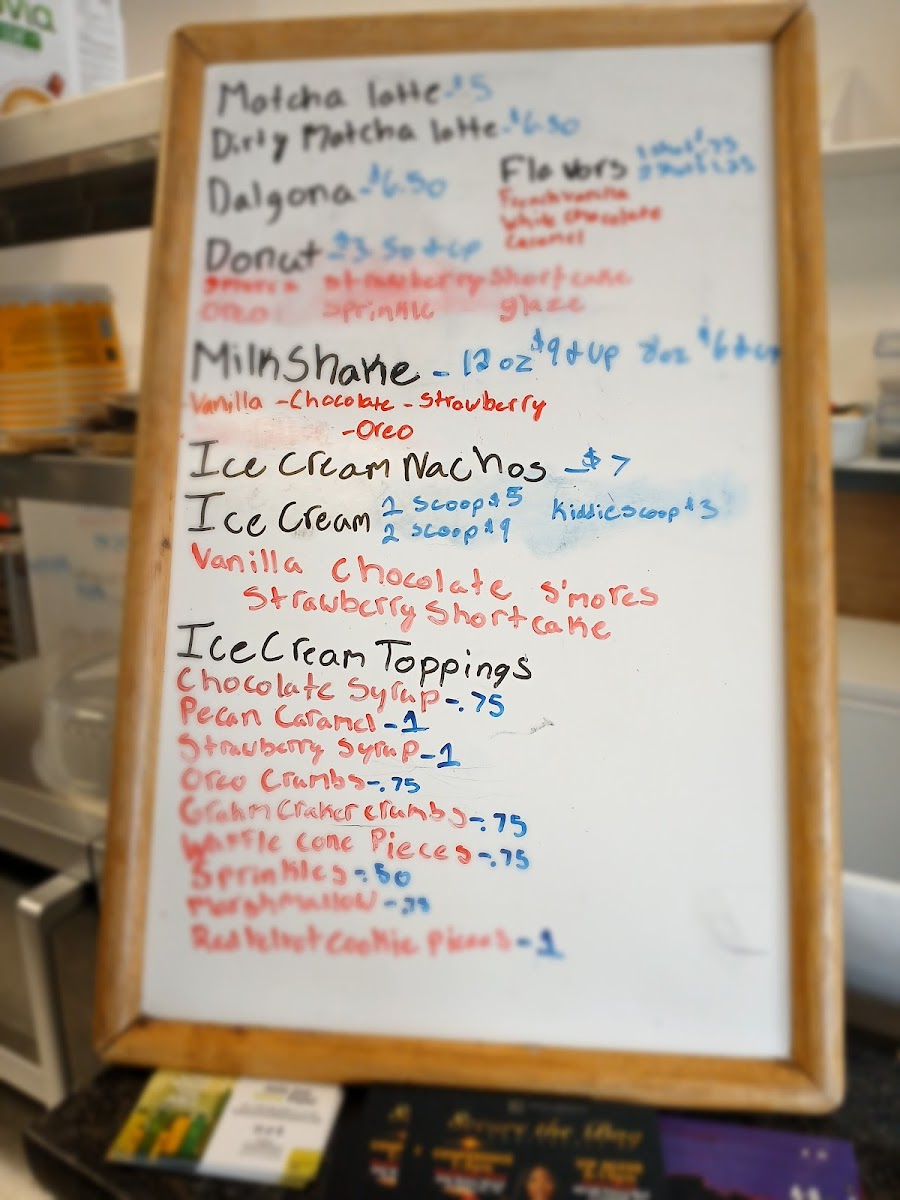 via
Matcha latte - $5
Dirty Matcha latte - $6.50
Dalgona - $6.50
Flavors 1 shot .75
2 shot 1.25
French vanilla
White chocolate
Caramel
Donut - $3.50 & up
S'mores strawberry shortcake
Oreo sprinkle glaze
Milkshake - 12 oz $9 & up 8oz $6 & up
Vanilla - Chocolate - Strawberry
- Oreo
Ice Cream Nachos - $7
Ice Cream 1 scoop $5 Kiddie scoop $3
2 scoop $9
Vanilla Chocolate S'mores
Strawberry Shortcake
Ice Cream Toppings
Chocolate Syrup - .75
Pecan Caramel - 1
Strawberry Syrup - 1
Oreo Crumbs - .75
Grahm Craker crumbs - .75
Waffle cone Pieces - .75
Sprinkles - .50
Marshmallow - .75
Red Velvet Cookie Pieces - 1